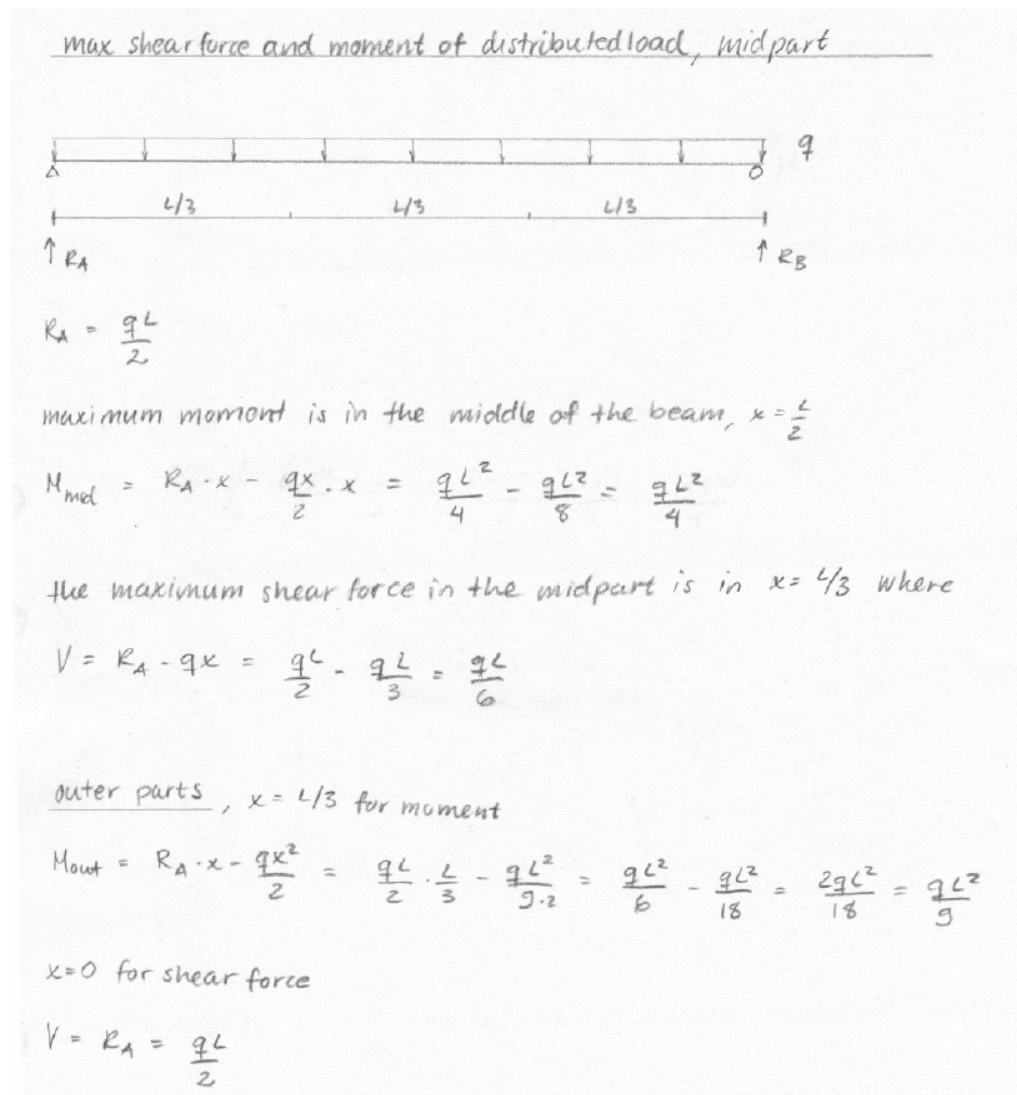 max shear force and moment of distributed load, midpart
q
L/3 L/3 L/3
R_A R_B
R_A = qL/2
maximum momont is in the middle of the beam, x = L/2
M_mid = R_A · x - qx/2 · x = qL²/4 - qL²/8 = qL²/4
the maximum shear force in the midpart is in x = L/3 where
V = R_A - qx = qL/2 - qL/3 = qL/6
outer parts, x = L/3 for moment
M_out = R_A · x - qx²/2 = qL/2 · L/3 - qL²/9·2 = qL²/6 - qL²/18 = 2qL²/18 = qL²/9
x=0 for shear force
V = R_A = qL/2